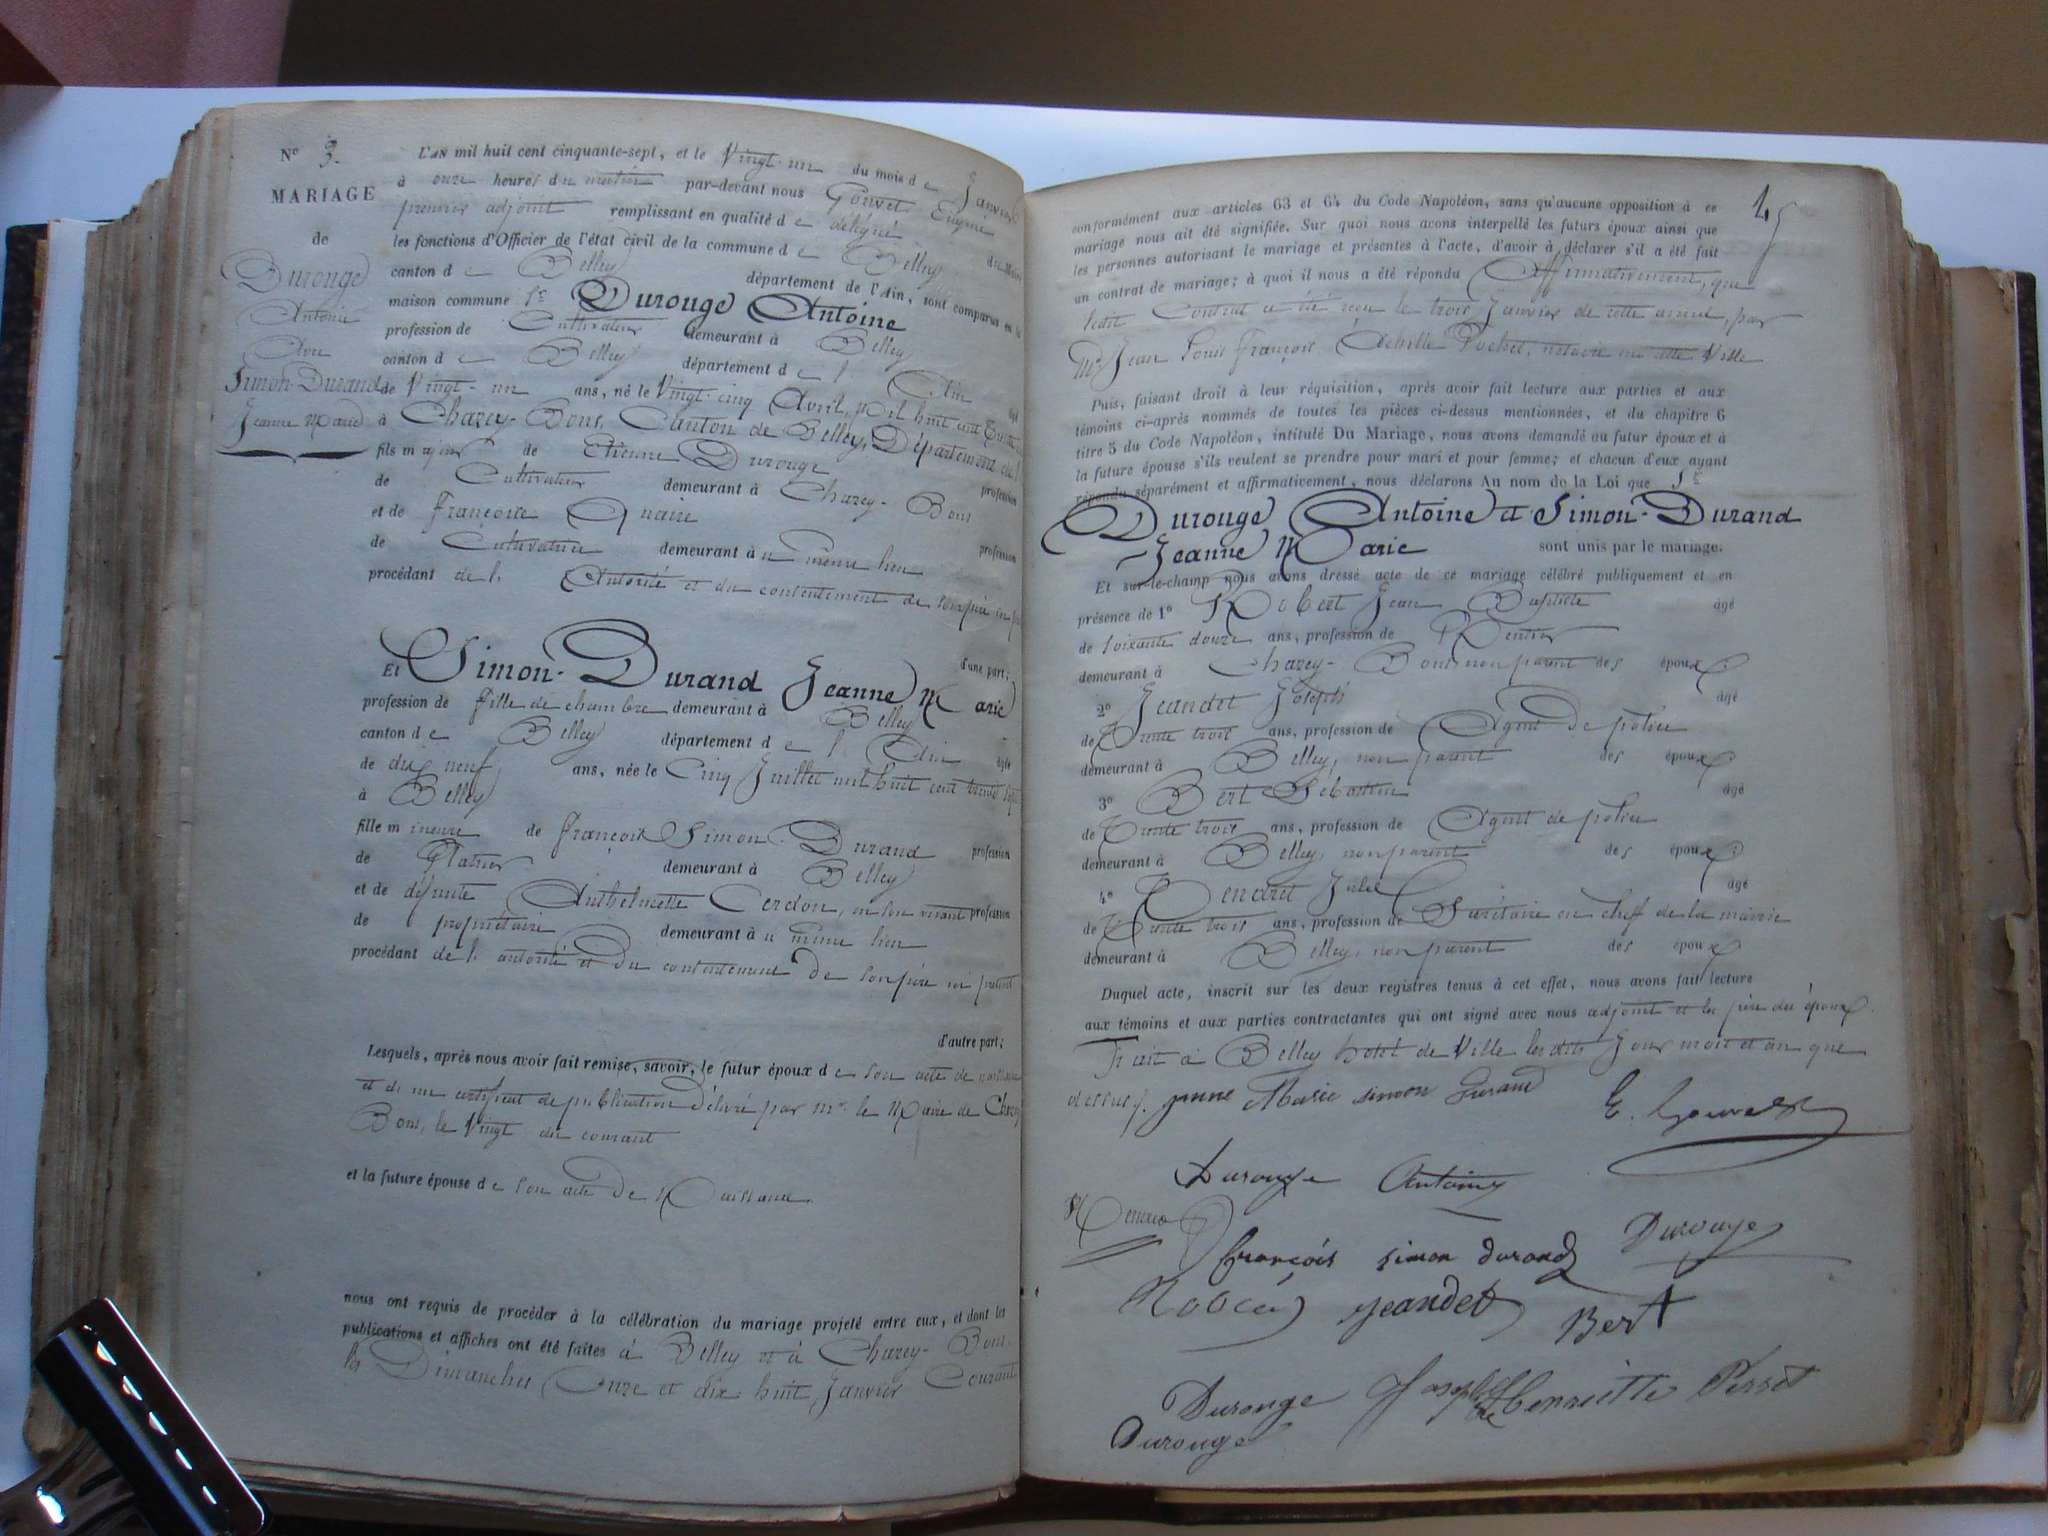 N° 3.
MARIAGE
de
Durouge
Antoine
Avec
Simon-Durand
Jeanne Marie
L'AN mil huit cent cinquante-sept, et le Vingt-un du mois de Janvier
à onze heures du matin par-devant nous Gouvet Eugène
premier adjoint remplissant en qualité de délégué du Maire
les fonctions d'Officier de l'état civil de la commune de Belley
canton de Belley département de l'Ain, sont comparus en la
maison commune 1° Durouge Antoine
profession de Cultivateur demeurant à Belley
canton de Belley département de l'Ain âgé
de Vingt-un ans, né le Vingt-cinq Avril, mil huit cent trente
à Chazey-Bons, Canton de Belley, Département de l'
fils majeur de Etienne Durouge profession
de Cultivateur demeurant à Chazey-Bons
et de Françoise profession
de Cultivatrice demeurant à u même lieu
procédant de l'Autorité et du consentement de son père ici
d'une part;
Et Simon-Durand Jeanne Marie
profession de Fille de chambre demeurant à Belley
canton de Belley département de l'Ain âgée
de dix neuf ans, née le Cinq Juillet mil huit cent trente sept
à Belley
fille mineure de François Simon-Durand profession
de Platrier demeurant à Belley
et de défunte Anthelmette Cerdon, en son vivant profession
de propriétaire demeurant à u même lieu
procédant de l'autorité et du consentement de son père ici présent
d'autre part;
Lesquels, après nous avoir fait remise, savoir, le futur époux de son acte de naissance
et d'un certificat de publication délivré par Mr. le Maire de Chazey
Bons, le Vingt du courant
et la future épouse de son acte de Naissance
nous ont requis de procéder à la célébration du mariage projeté entre eux, et dont les
publications et affiches ont été faites à Belley et à Chazey-Bons
les Dimanches Onze et dix huit Janvier Courant
45
conformément aux articles 63 et 64 du Code Napoléon, sans qu'aucune opposition à ce
mariage nous ait été signifiée. Sur quoi nous avons interpellé les futurs époux ainsi que
les personnes autorisant le mariage et présentes à l'acte, d'avoir à déclarer s'il a été fait
un contrat de mariage; à quoi il nous a été répondu Affirmativement, que
ledit Contrat a été reçu le trois Janvier de cette année, par
Me. Jean Louis François Achille Pochet, notaire en cette Ville
Puis, faisant droit à leur réquisition, après avoir fait lecture aux parties et aux
témoins ci-après nommés de toutes les pièces ci-dessus mentionnées, et du chapitre 6
titre 5 du Code Napoléon, intitulé Du Mariage, nous avons demandé au futur époux et à
la future épouse s'ils veulent se prendre pour mari et pour femme; et chacun d'eux ayant
répondu séparément et affirmativement, nous déclarons Au nom de la Loi que
Durouge Antoine et Simon-Durand
Jeanne Marie sont unis par le mariage.
Et sur-le-champ nous avons dressé acte de ce mariage célébré publiquement et en
présence de 1° Robert Jean Baptiste âgé
de soixante douze ans, profession de Rentier
demeurant à Chazey-Bons non parent des époux;
2° Jeandet Joseph âgé
de Trente trois ans, profession de Agent de police
demeurant à Belley, non parent des époux
3° Bert Sébastien âgé
de Trente trois ans, profession de Agent de police
demeurant à Belley, non parent des époux;
4° Julie âgé
de Trente trois ans, profession de Secrétaire en chef de la mairie
demeurant à Belley, non parent des époux
Duquel acte, inscrit sur les deux registres tenus à cet effet, nous avons fait lecture
aux témoins et aux parties contractantes qui ont signé avec nous adjoint et les père des époux.
Fait à Belley hôtel de Ville lesdits Jour mois et an que
dessus. jeanne Marie simon Durand E. Gouvet
Durouge Antoine
françois simon durand Durouge
Robert jeandet Bert
Durouge Joseph henriette Perret
Durouge